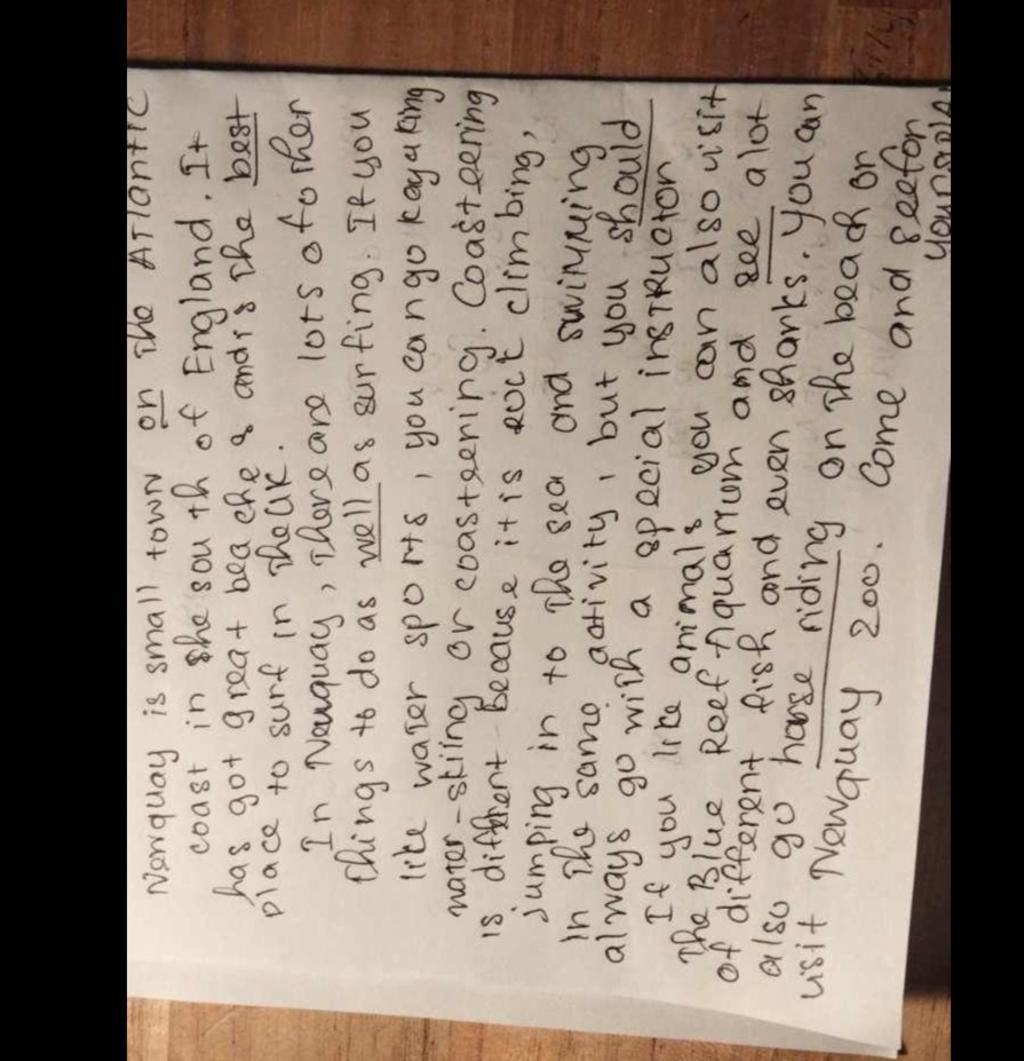 Newquay is small town on the Atlantic
coast in the south of England. It
has got great beaches and is the best
place to surf in the UK.
In Newquay, There are lots of other
things to do as well as surfing. If you
like water sports, you can go kayaking
water-skiing or coasteering. Coasteering
is different because it is rock climbing,
jumping in to the sea and swimming
in the same activity, but you should
always go with a special instructor
If you like animals you can also visit
The Blue Reef Aquarium and see a lot
of different fish and even sharks. You can
also go horse riding on the beach or
visit Newquay zoo. Come and see for
yourself